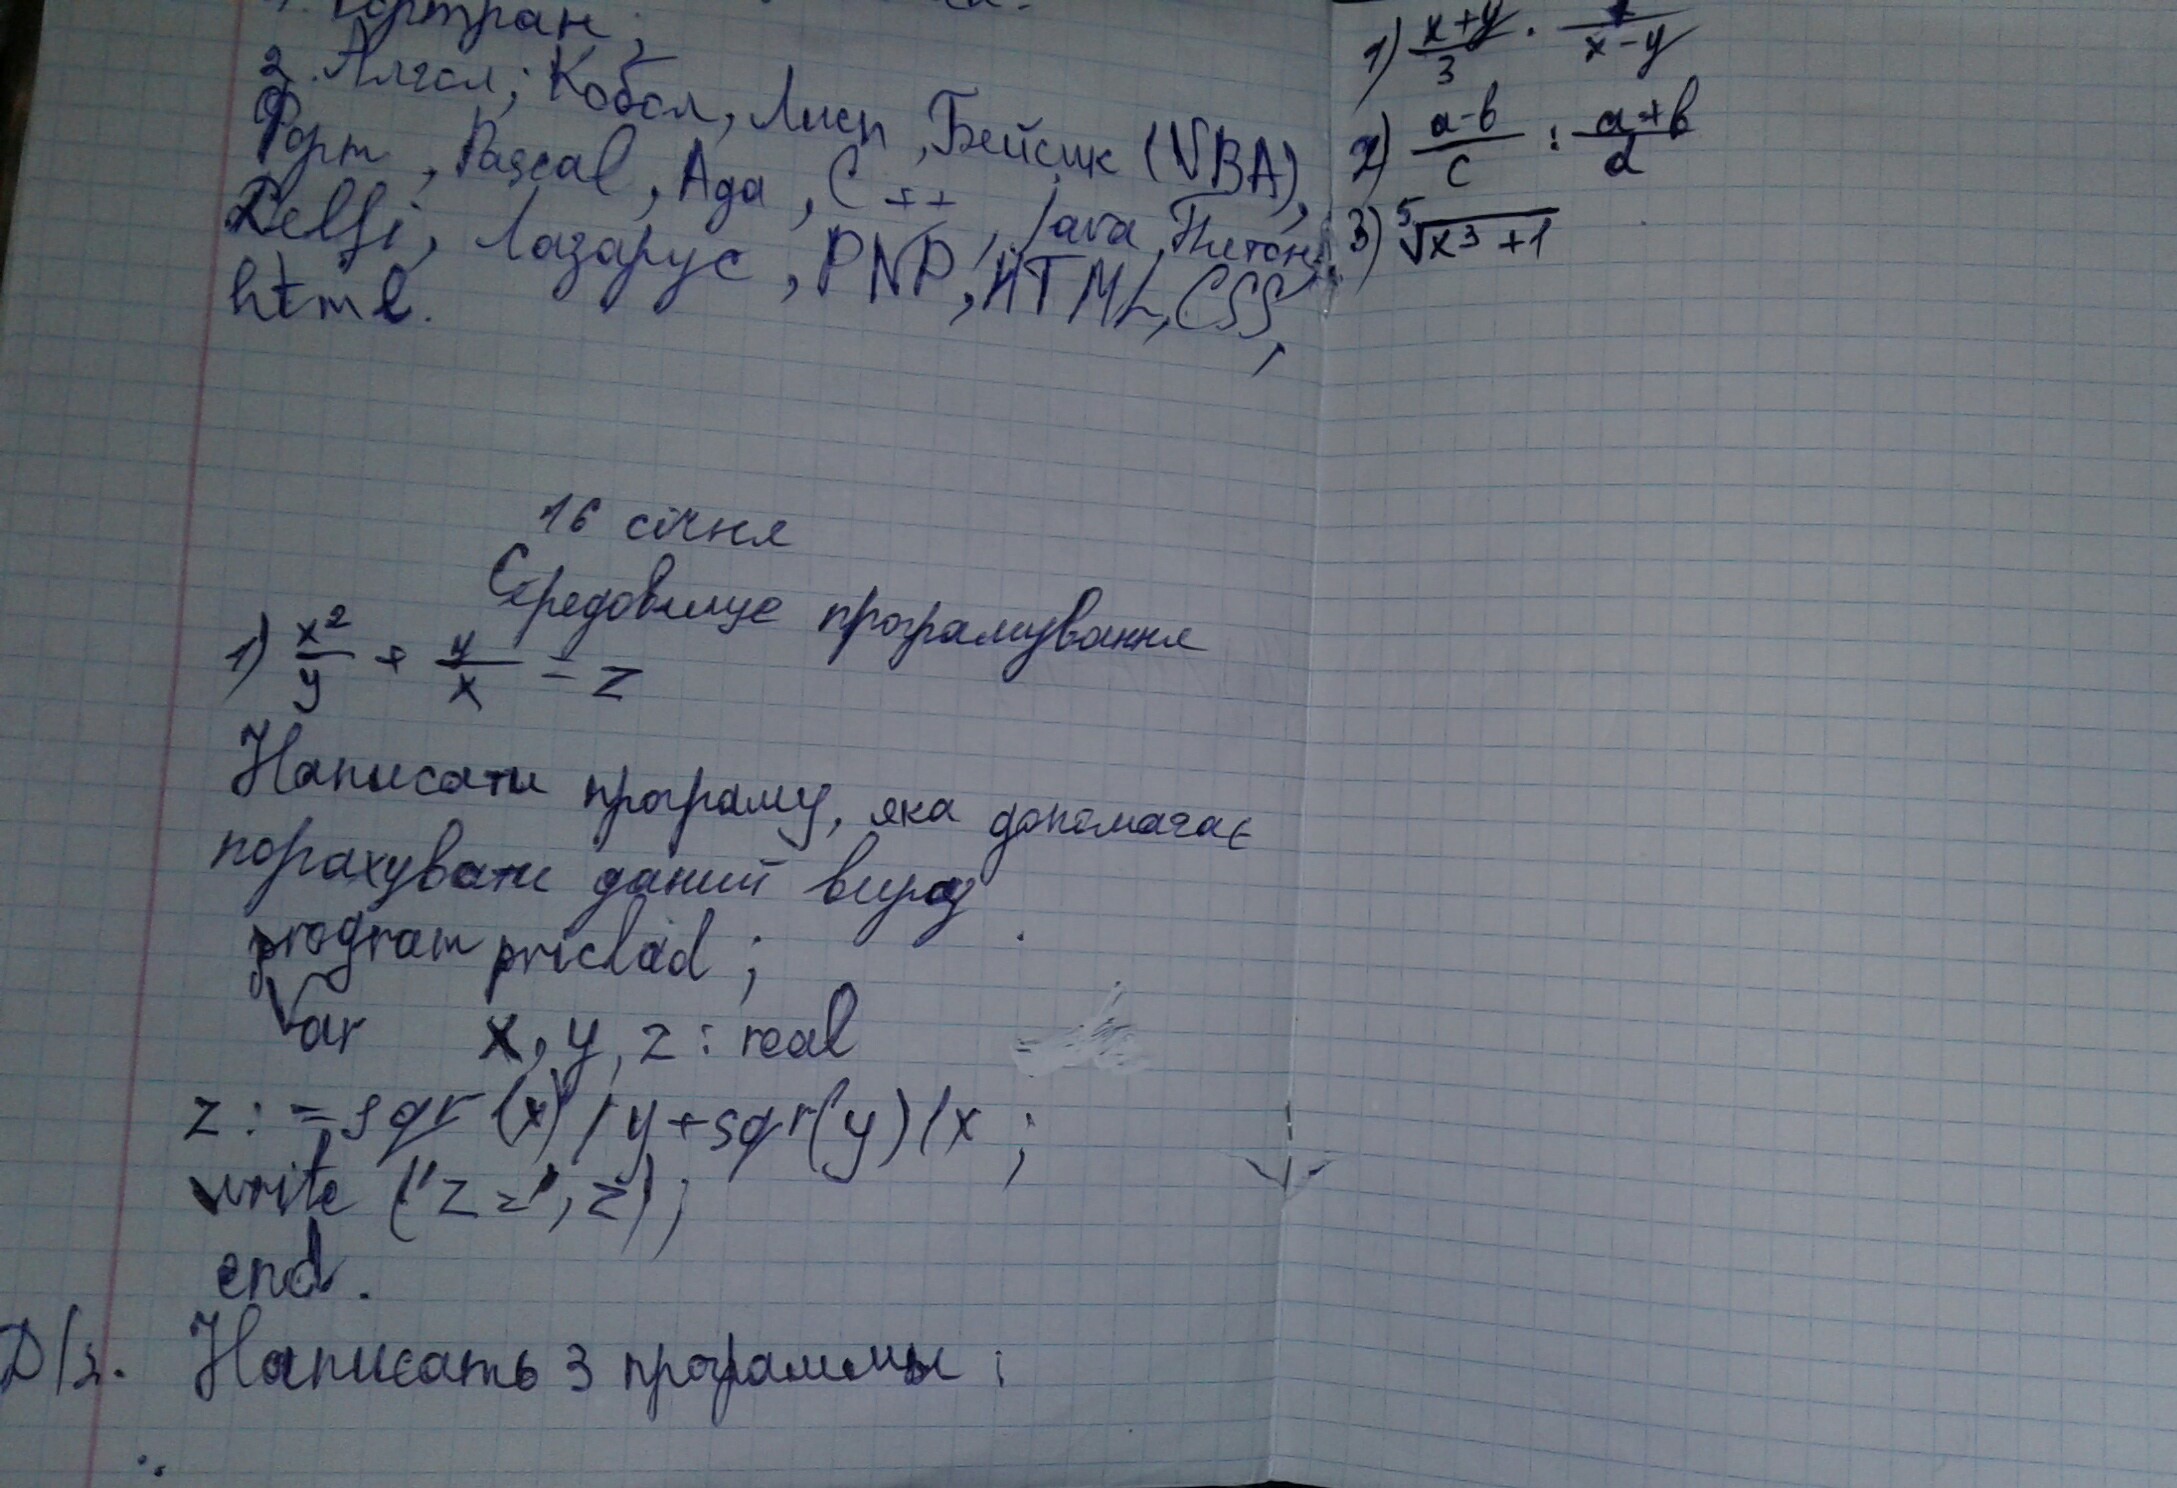 1. Фортран;
2. Алгол; Кобол, Лисп, Бейсик (VBA),
Форт, Pascal, Ада, C++, Java, Питон,
Delfi, Лазарус, PNP, HTML, CSS,
html.
16 січня
Середовище програмування
1) x²/y + y/x = z
Написати програму, яка допомагає
порахувати даний вираз
program priclad;
Var x, y, z : real
z := sqr(x)/y+sqr(y)/x;
write ('z=', z);
end.
Д/з. Написать 3 программы:
1) x+y/3 · /x-y
2) a-b/c : a+b/d
3) ⁵√x³+1